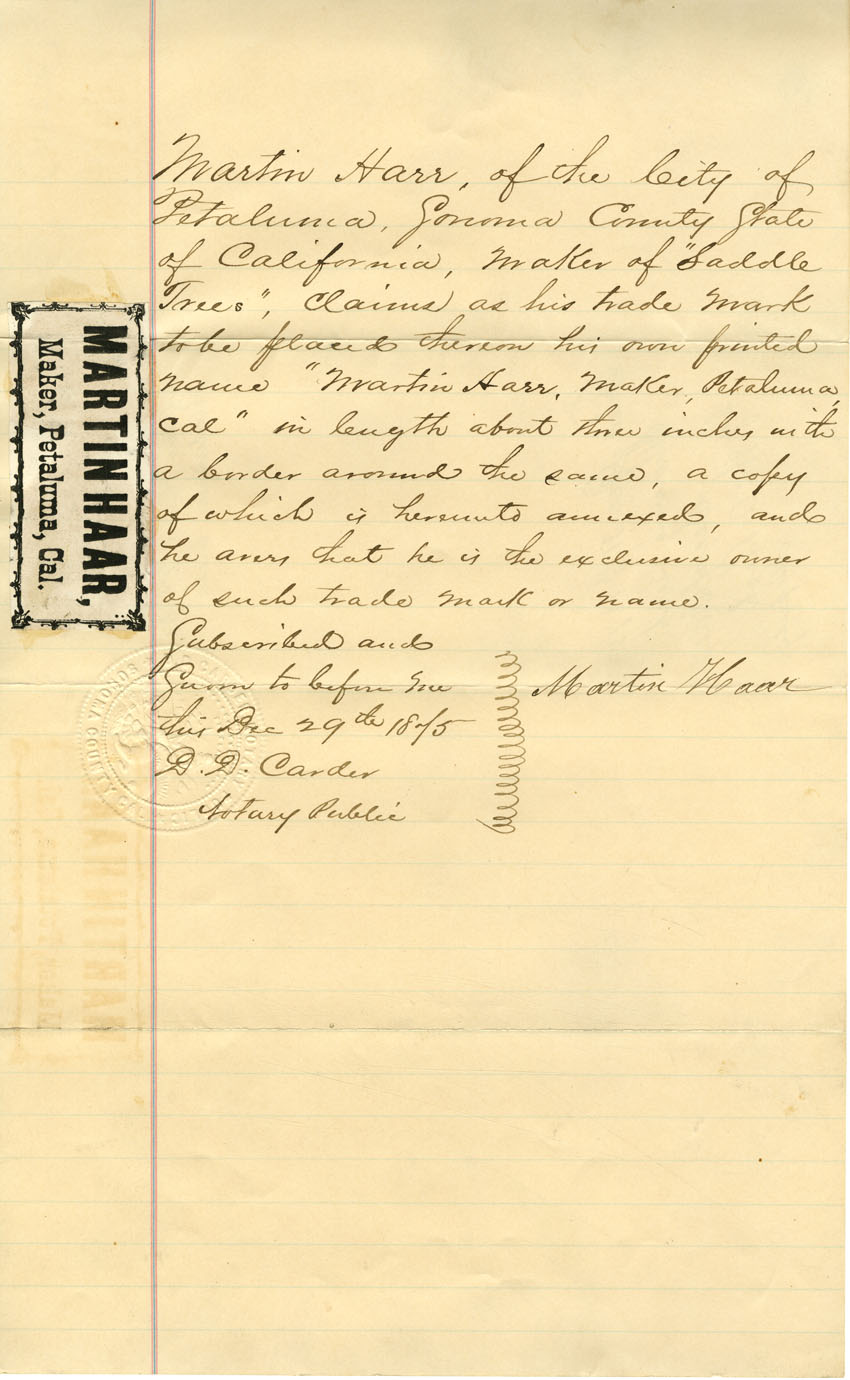 Martin Harr, of the City of
Petaluma, Sonoma County State
of California, maker of "Saddle
Trees", claims as his trade mark
to be placed thereon his own printed
name "Martin Harr, Maker, Petaluma,
Cal" in length about three inches with
a border around the same, a copy
of which is hereunto annexed, and
he avers that he is the exclusive owner
of such trade mark or name.
Subscribed and
Sworn to before me
this Dec 29th 1875
D. D. Carder
Notary Public
Martin Haar
MARTIN HAAR,
Maker, Petaluma, Cal.